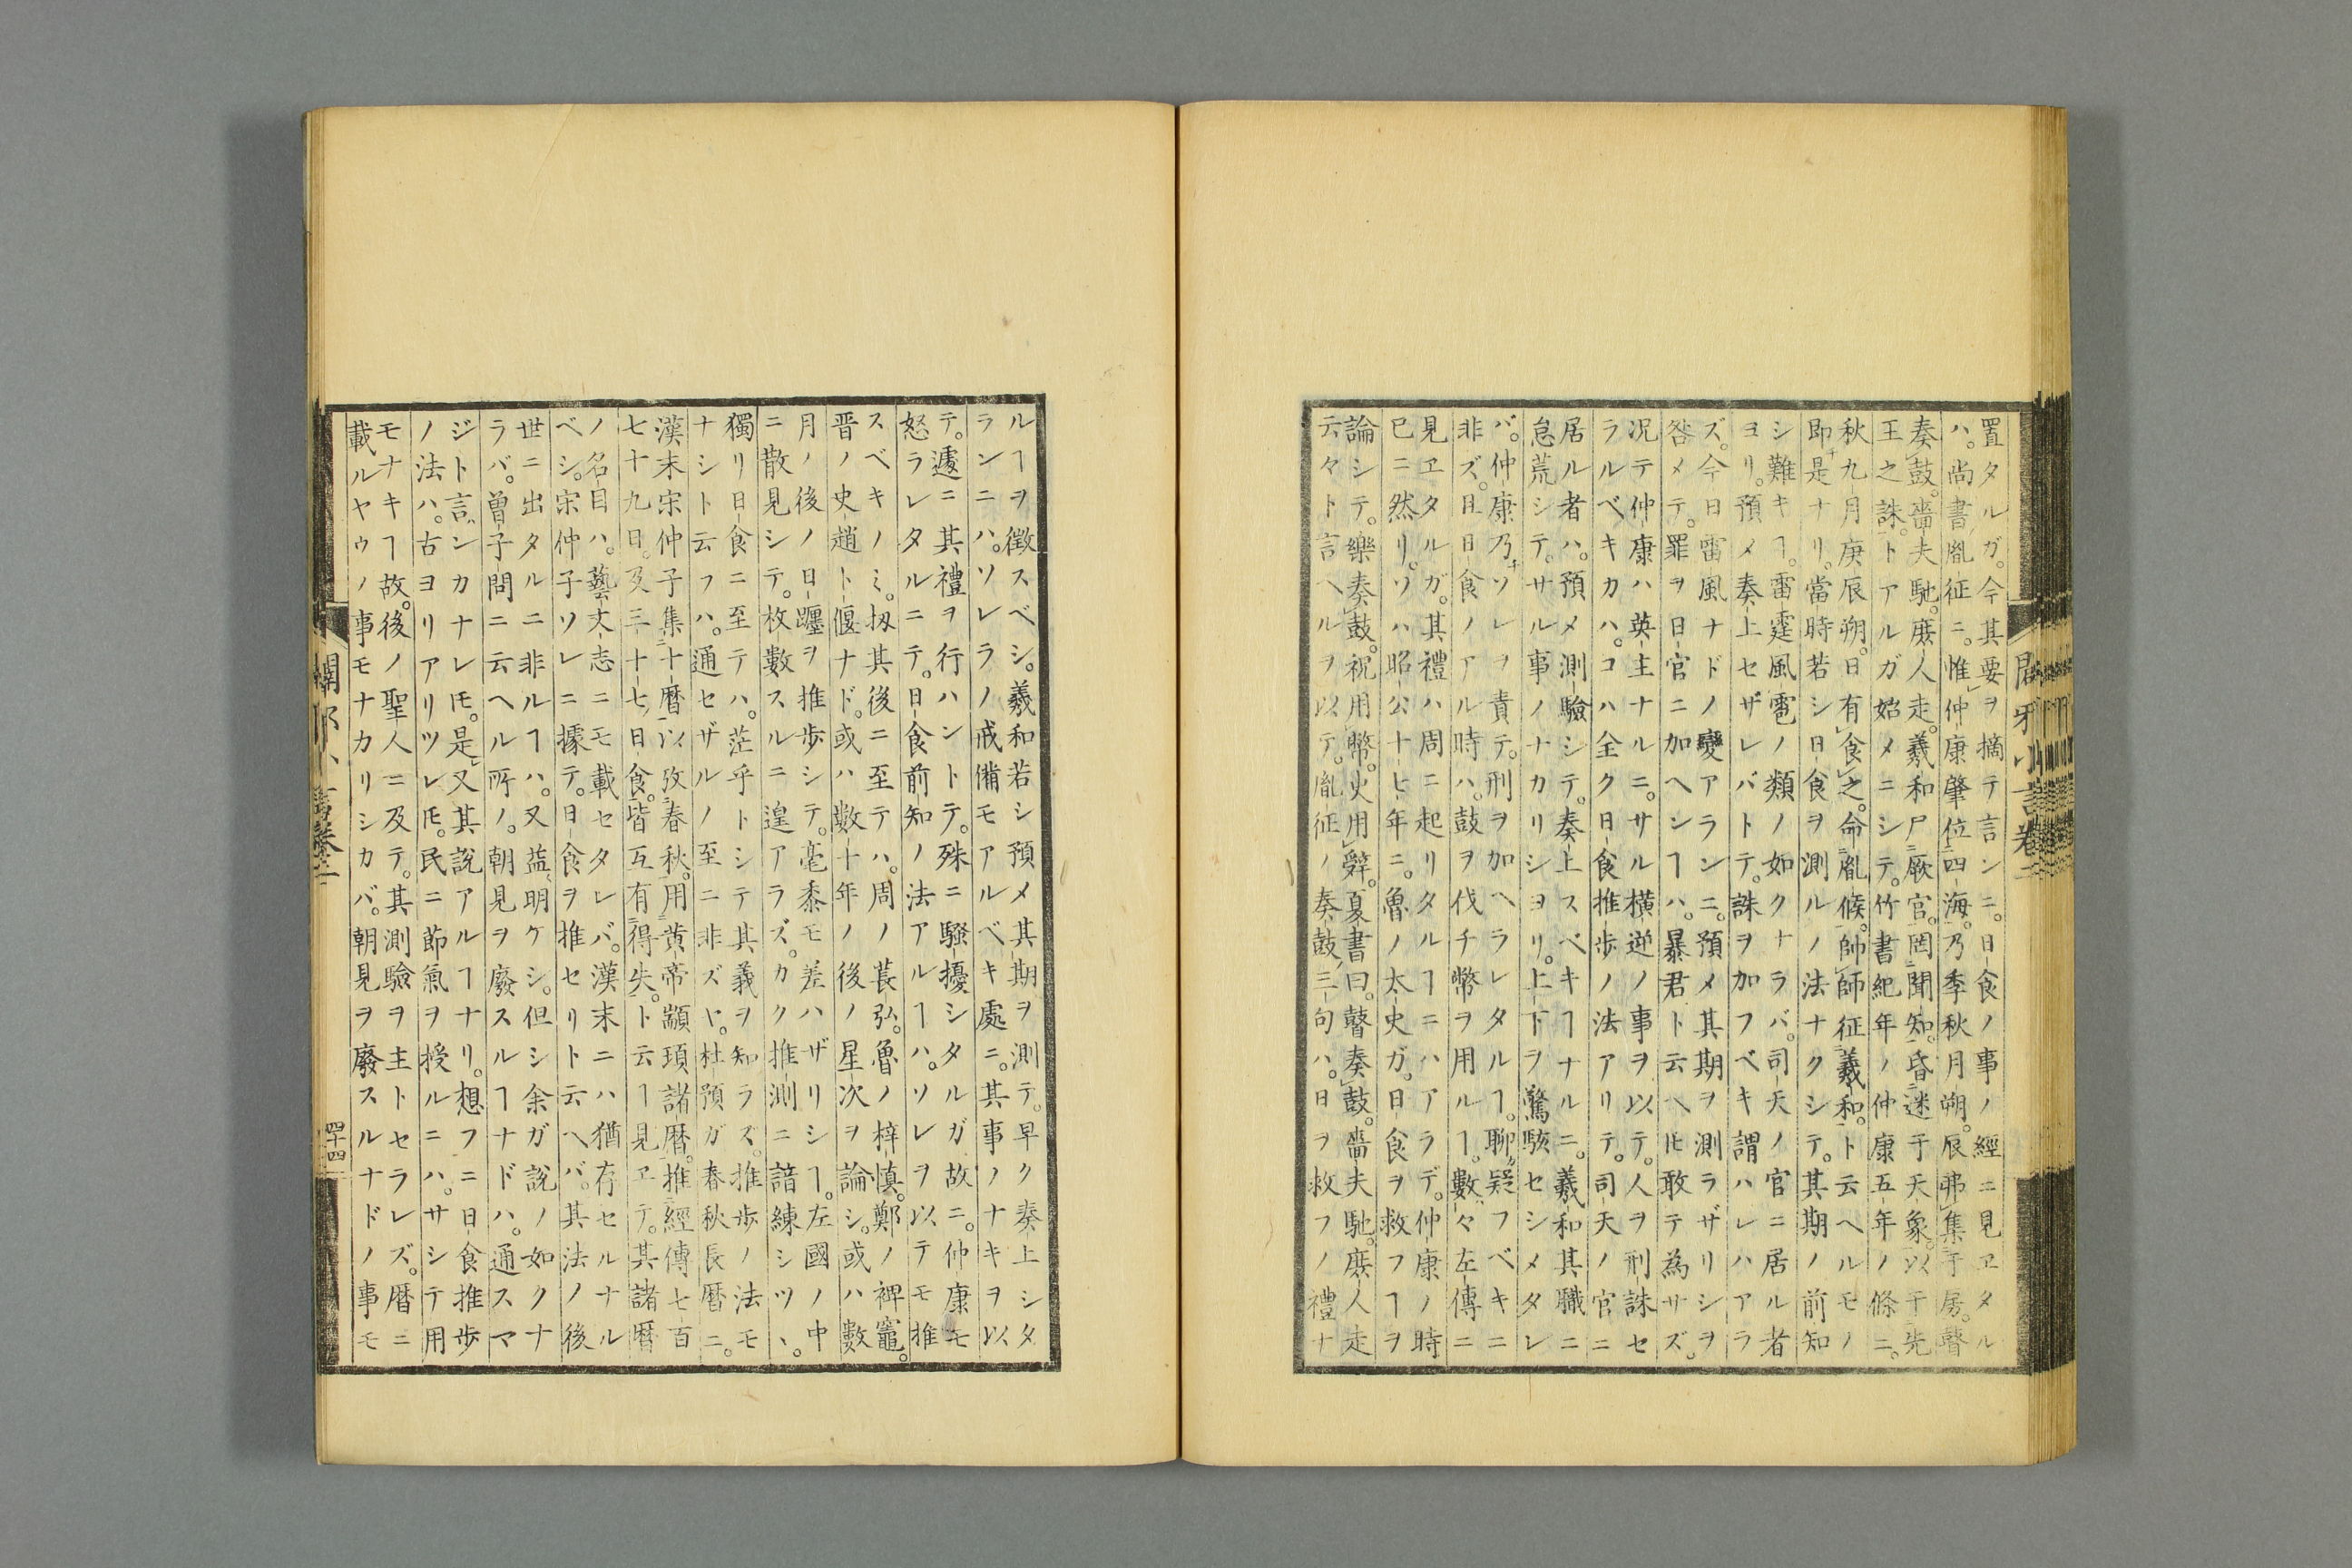 置タルガ。今其要ヲ摘テ言ンニ。日食ノ事ノ經ニ見ヱタル
ハ。尚書胤征ニ。惟仲康肇位四海。乃季秋月朔。辰弗集于房。瞽
奏鼓。嗇夫馳。庶人走。羲和尸厥官。罔聞知。昏迷于天象。以干先
王之誅。トアルガ始メニシテ。竹書紀年ノ仲康五年ノ條ニ。
秋九月庚辰朔。日有食之。命胤候。帥師征羲和。ト云ヘルモノ
即是ナリ。當時若シ日食ヲ測ルノ法ナクシテ。其期ノ前知
シ難キヿ。雷霆風雹ノ類ノ如クナラバ。司天ノ官ニ居ル者
ヨリ。預メ奏上セザレバトテ。誅ヲ加フベキ謂ハレハアラ
ズ。今日雷風ナドノ變アランニ。預メ其期ヲ測ラザリシヲ
咎メテ。罪ヲ日官ニ加ヘンヿハ。暴君ト云ヘ𪜈敢テ為サズ。
况テ仲康ハ英主ナルニ。サル橫逆ノ事ヲ以テ。人ヲ刑誅セ
ラルベキカハ。コハ全ク日食推歩ノ法アリテ。司天ノ官ニ
居ル者ハ。預メ測驗シテ。奏上スベキヿナルニ。羲和其職ニ
怠荒シテ。サル事ノナカリシヨリ。上下ヲ驚駭セシメタレ
バ。仲康乃ソレヲ責テ。刑ヲ加ヘラレタルヿ。聊疑フベキニ
非ズ。且日食ノアル時ハ。鼓ヲ伐チ幣ヲ用ルヿ。數々左傳ニ
見ヱタルガ。其禮ハ周ニ起リタルヿニハアラデ。仲康ノ時
已ニ然リ。ソハ昭公十七年ニ。魯ノ太史ガ。日食ヲ救フヿヲ
論シテ。樂奏鼓。祝用幣。史用辭。夏書曰。瞽奏鼓。嗇夫馳。庶人走
云々ト言ヘルヲ以テ。胤征ノ奏鼓三句ハ。日ヲ救フノ禮ナ
ルヿヲ徴スベシ。羲和若シ預メ其期ヲ測テ。早ク奏上シタ
ランニハ。ソレラノ戒備モアルベキ處ニ。其事ノナキヲ以
テ。遽ニ其禮ヲ行ハントテ。殊ニ騷擾シタルガ故ニ。仲康モ
怒ラレタルニテ。日食前知ノ法アルヿハ。ソレヲ以テモ推
スベキノミ。扨其後ニ至テハ。周ノ萇弘。魯ノ梓慎。鄭ノ裨竈。
晋ノ史趙ト偃ナド。或ハ數十年ノ後ノ星次ヲ論シ。或ハ數
月ノ後ノ日躔ヲ推歩シテ。毫黍モ差ハザリシヿ。左國ノ中
ニ散見シテ。枚數スルニ遑アラズ。カク推測ニ諳練シツヽ。
獨リ日食ニ至テハ。茫乎トシテ其義ヲ知ラズ。推歩ノ法モ
ナシト云フハ。通セザルノ至ニ非ズヤ。杜預ガ春秋長暦ニ。
漢末宋仲子集十暦以攷春秋。用黄帝顓頊諸暦。推經傳七百
七十九日。及三十七日食。皆互有得失。ト云ヿ見ヱテ。其諸暦
ノ名目ハ。藝文志ニモ載セタレバ。漢末ニハ猶存セルナル
ベシ。宋仲子ソレニ據テ。日食ヲ推セリト云ヘバ。其法ノ後
世ニ出タルニ非ルヿハ。又益明ケシ。但シ余ガ說ノ如クナ
ラバ。曾子問ニ云ヘル所ノ。朝見ヲ廢スルヿナドハ。通スマ
ジト言ンカナレ𪜈。是又其說アルヿナリ。想フニ日食推歩
ノ法ハ。古ヨリアリツレ𪜈。民ニ節氣ヲ授ルニハ。サシテ用
モナキヿ故。後ノ聖人ニ及テ。其測驗ヲ主トセラレズ。暦ニ
載ルヤウノ事モナカリシカバ。朝見ヲ廢スルナドノ事モ
四十四